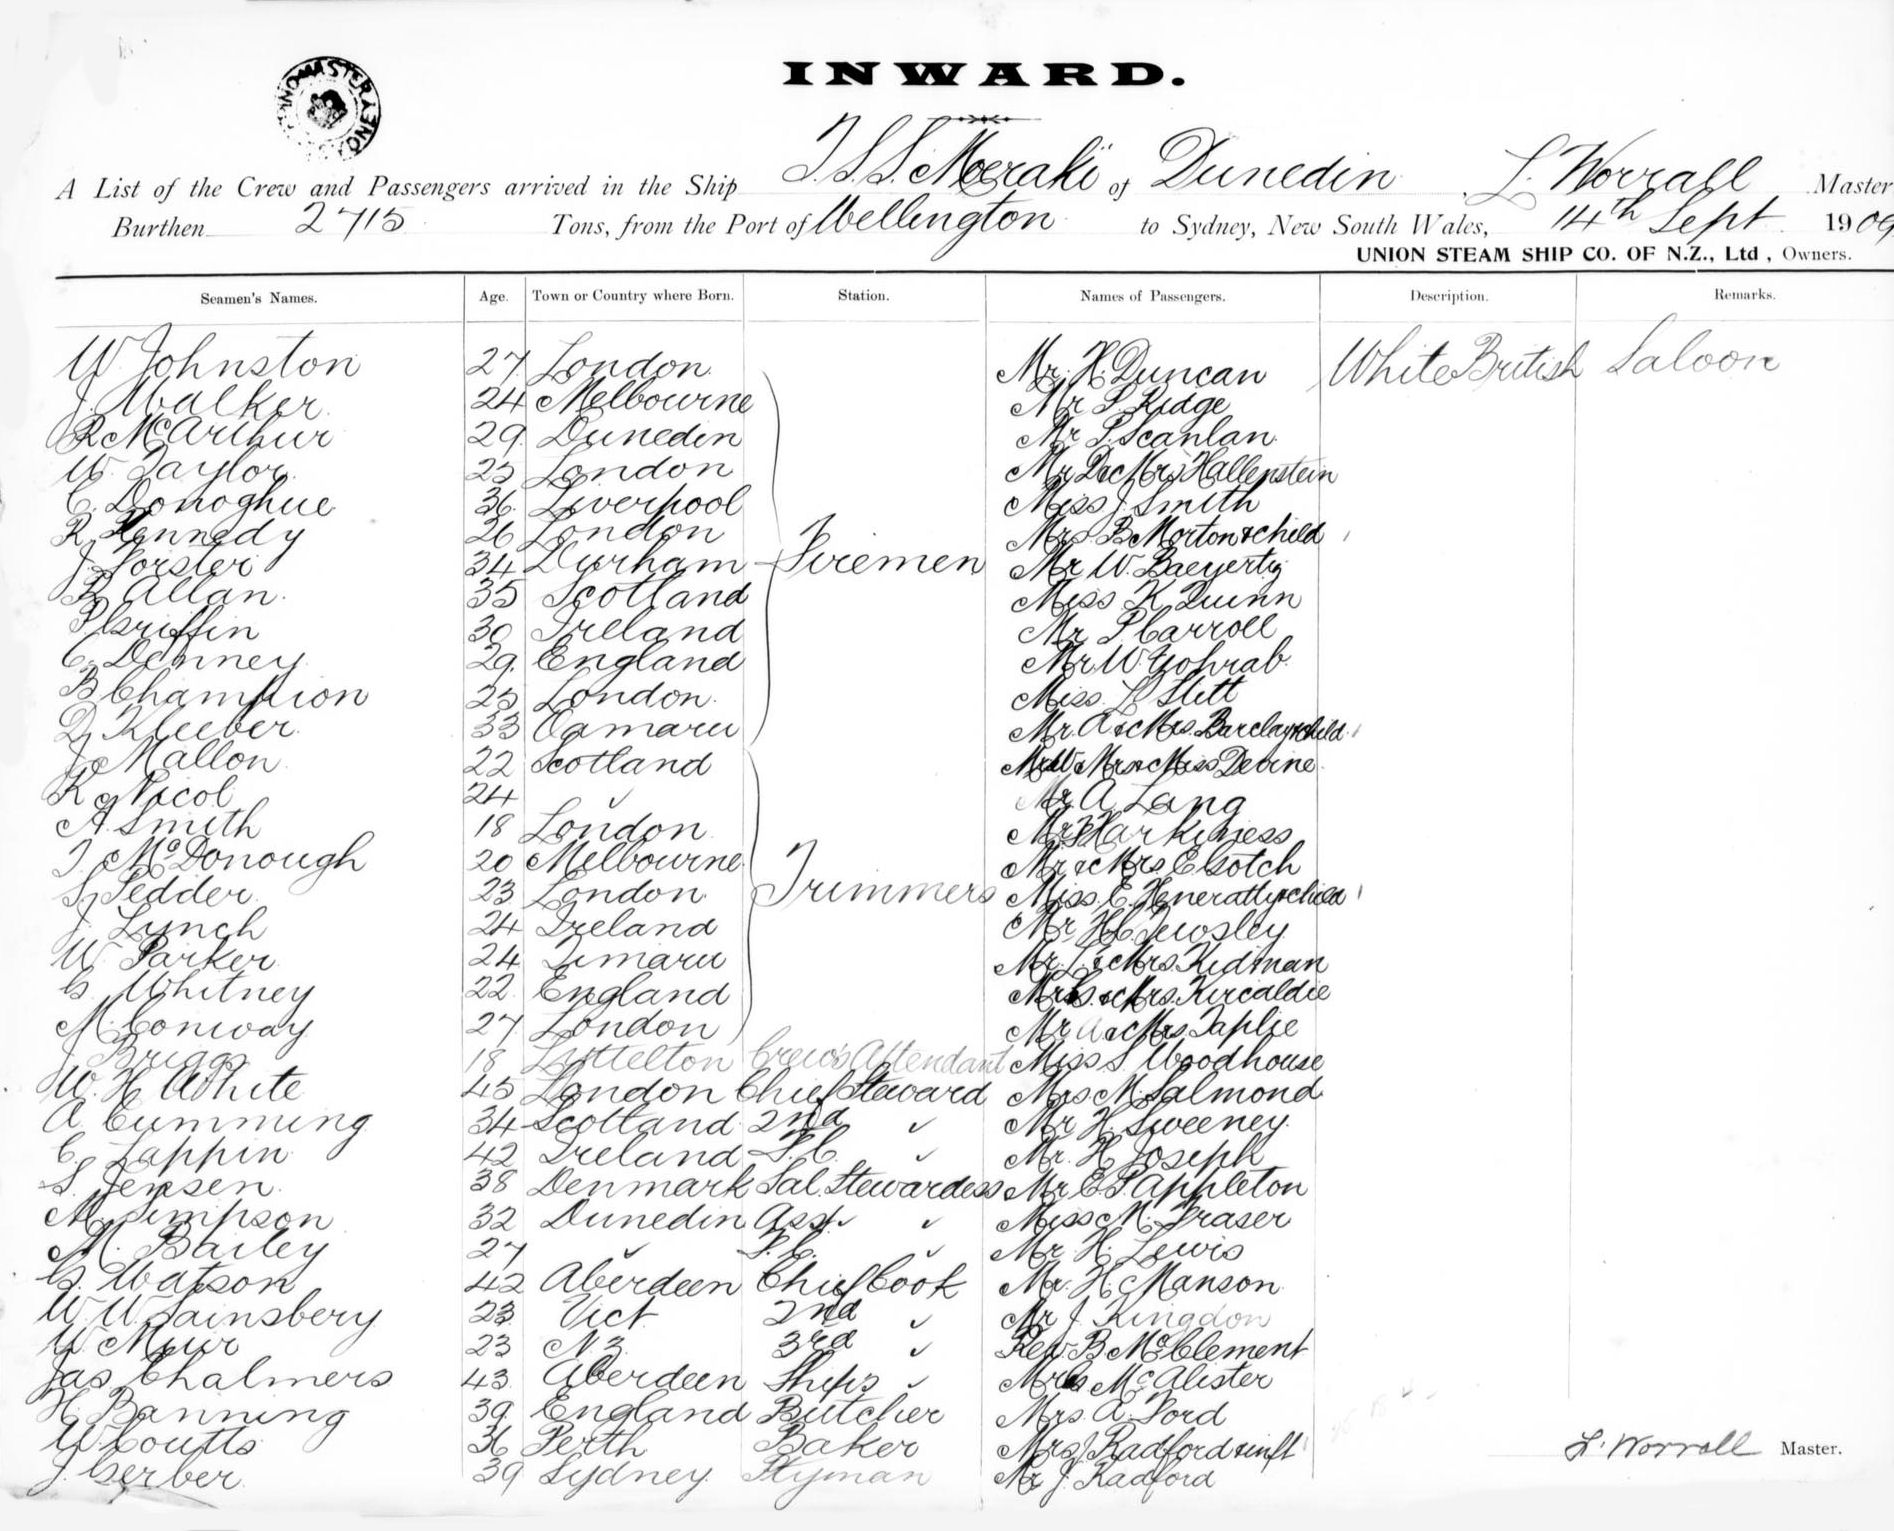 INWARD.
A List of the Crew and Passengers arrived in the Ship T.S.S. "Moeraki" of Dunedin L. Worrall Master
Burthen 2715 Tons, from the Port of Wellington to Sydney, New South Wales, 14th Sept 1909
UNION STEAM SHIP CO. OF N.Z., Ltd, Owners.
Seamen's Names. Age. Town or Country where Born. Station. Names of Passengers. Description. Remarks.
W Johnston 27 London Mr. H. Duncan White British Saloon
J. Walker 24 Melbourne Mr S. Kidge
R McArthur 29 Dunedin Mr P. Scanlan
W. Taylor 25 London Mr D & Mrs Hallenstein
C. Donoghue 36 Liverpool Miss J Smith
R Kennedy 26 London Mrs B Morton & child
J. Forster 34 Durham Firemen Mr W. Baeyertz
R Allan 35 Scotland Miss K Quinn
P Griffin 30 Ireland Mr P Carroll
C. Denney 29 England Mr W.
B Champion 25 London Miss L
D Kleeber 33 Oamaru Mr. A & Mrs. Barclay & child
J Mallon 22 Scotland Mr W Mrs & Miss Devine
K Nicol 24 " Mr A Lang
A. Smith 18 London Harkness
T. McDonough 20 Melbourne Mr & Mrs E Gotch
S. Pedder 23 London Trimmers Miss E. & child
J Lynch 24 Ireland Mr H C Tewsley
W Parker 24 Timaru Mr. L & Mrs. Kidman
G. Whitney 22 England Mr & Mrs. Kircaldie
M. Conway 27 London Mr A & Mrs Taplie
J Briggs 18 Lyttelton Crew's Attendant Miss S Woodhouse
W. H White 45 London Chief Steward Mrs M. Salmond
A Cumming 34 Scotland 2nd " Mr H. Sweeney
C Lappin 42 Ireland F.C. " Mr. H Joseph
S. Jensen 38 Denmark Sal. Stewardess Mr E P Appleton
M Simpson 32 Dunedin Asst " Miss M. Fraser
M. Bailey 27 " F.C. " Mr H. Lewis
G. Watson 42 Aberdeen Chief Cook Mr. H. Manson
W W Sainsbery 23 Vict 2nd " Mr J. Kingdon
W Muir 23 NZ 3rd " Rev B McClement
Jas Chalmers 43 Aberdeen Ships " McAlister
H. Banning 39 England Butcher Mrs. A. Ford
W Coutts 36 Perth Baker Mrs J Radford & inft
J. Gerber 39 Sydney Plyman Mr J. Radford
L. Worrall Master.